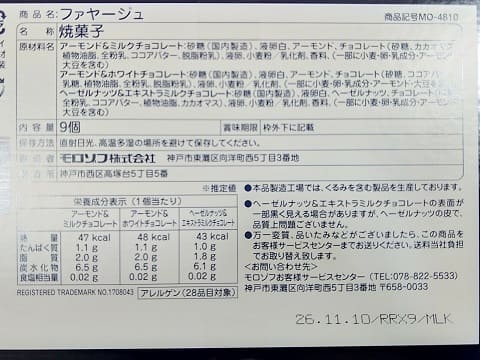 商品名:ファヤージュ
商品記号MO-4810
名称:焼菓子
原材料名:アーモンド&ミルクチョコレート:砂糖(国内製造)、液卵白、アーモンド、チョコレート(砂糖、カカオマス、
植物油脂、全粉乳、ココアバター、脱脂粉乳)、液卵、小麦粉/乳化剤、香料、(一部に小麦・卵・乳成分・アーモンド・
大豆を含む)
アーモンド&ホワイトチョコレート:砂糖(国内製造)、液卵白、アーモンド、チョコレート(砂糖、
乳糖、植物油脂、全粉乳、ココアバター、脱脂粉乳)、液卵、小麦粉/乳化剤、香料、(一部に小麦・卵・乳成分・アーモンド・大豆を含む)
ヘーゼルナッツ&エキストラミルクチョコレート:砂糖(国内製造)、液卵白、ヘーゼルナッツ、チョコレート(
全粉乳、ココアバター、植物油脂、カカオマス)、液卵、小麦粉/乳化剤、香料、(一部に小麦・卵・乳成分・アーモンド・
大豆を含む)
内容量 9個 賞味期限 枠外下に記載
保存方法 直射日光、高温多湿の場所を避けて保存してください。
製造者 モロゾフ株式会社 神戸市東灘区向洋町西5丁目3番地
製造所 神戸市西区高塚台5丁目5番地
※推定値
栄養成分表示(1個当たり)
アーモンド& アーモンド& ヘーゼルナッツ&
ミルクチョコレート ホワイトチョコレート エキストラミルクチョコレート
熱量 47 kcal 48 kcal 43 kcal
たんぱく質 1.1 g 1.1 g 1.0 g
脂質 2.0 g 2.0 g 1.8 g
炭水化物 6.5 g 6.5 g 6.1 g
食塩相当量 0.02 g 0.02 g 0.02 g
REGISTERED TRADEMARK NO.1708043 アレルゲン(28品目対象)
●本製品工場では、くるみを含む製品を生産しております。
●ヘーゼルナッツ&エキストラミルクチョコレートの表面が
一部黒く見える場合がありますが、ヘーゼルナッツの皮で、
品質上問題ございません。
●万一変質、品いたみなどがございましたら、この商品を
お客様サービスセンターまでお送りください。送料当社負担
でお取り替え致します。
<お問い合わせ先>
モロゾフお客様サービスセンター(TEL:078-822-5533)
神戸市東灘区向洋町西5丁目3番地〒658-0033
26.11.10/RRX9/MLK